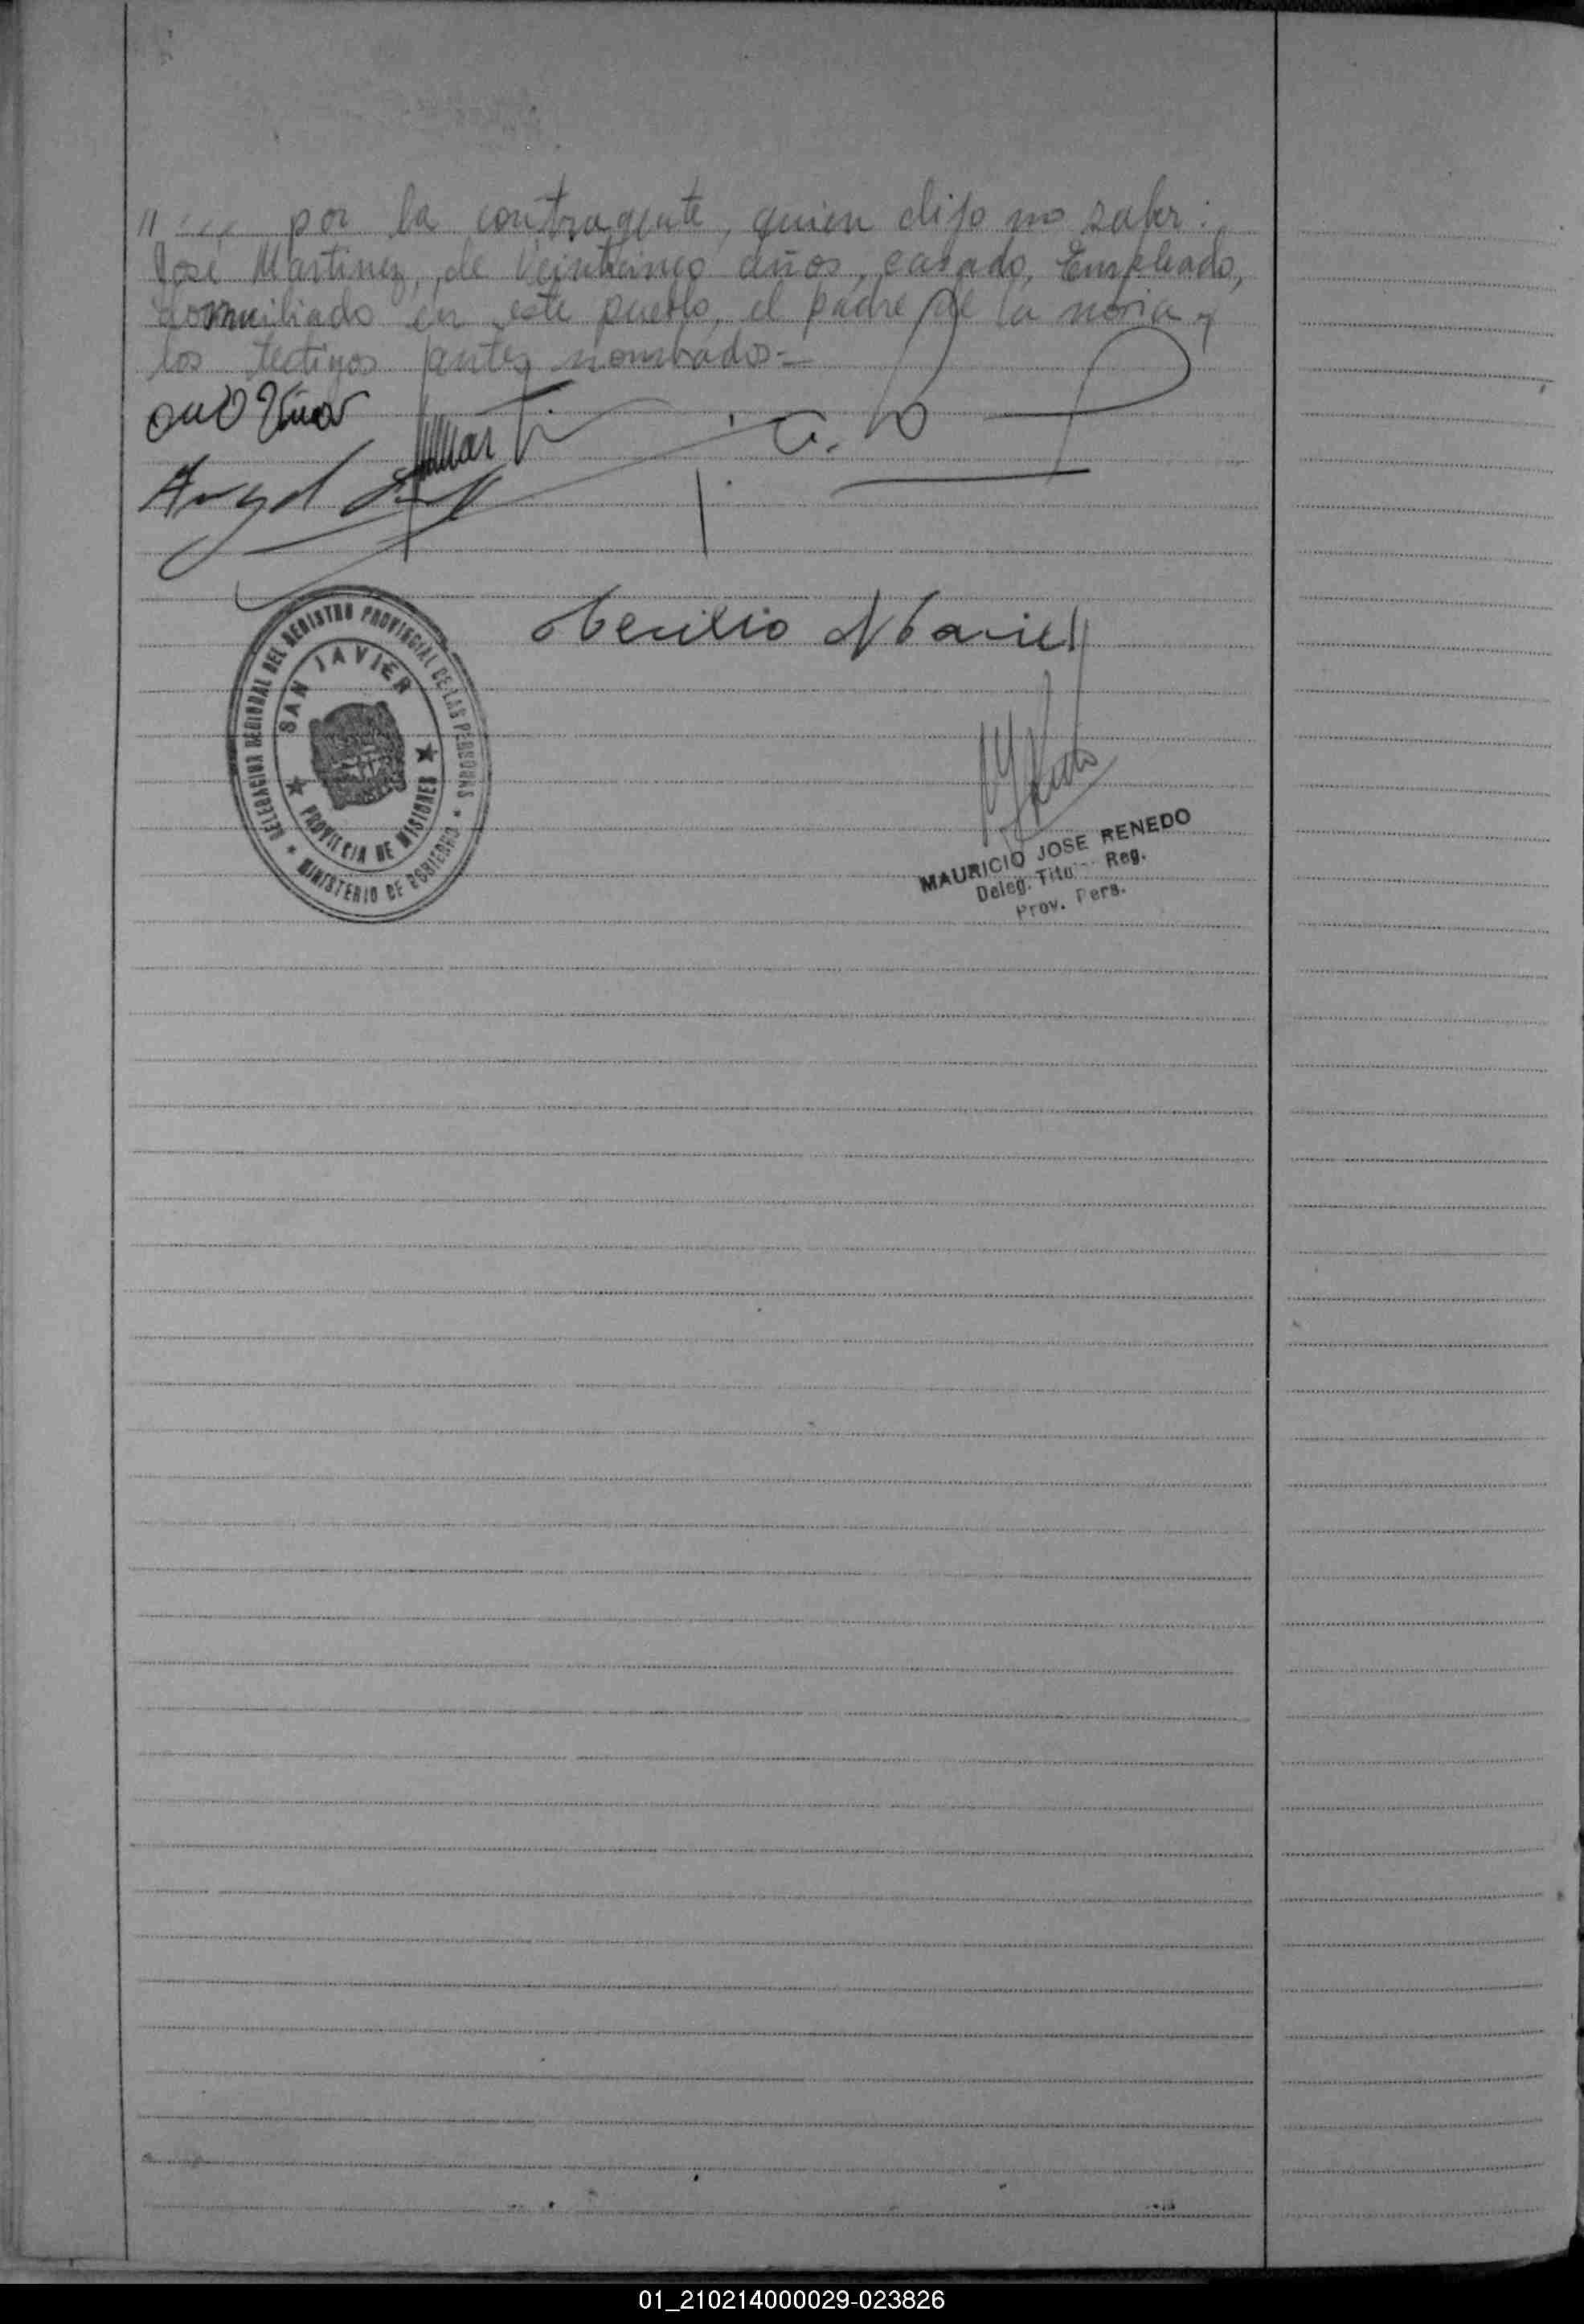 por la contrayente, quien dijo no saber:
José Martinez, de veinticinco años, casado, Empleado,
domiciliado en este pueblo, el padre de la novia y
los testigos antes nombrados-
Angel
DELEGACION REGIONAL DEL REGISTRO PROVINCIAL DE LAS PERSONAS
SAN JAVIER
PROVINCIA DE MISIONES
MINISTERIO DE GOBIERNO
MAURICIO JOSE RENEDO
Deleg. Reg.
Prov. Pers.
01_210214000029-023826